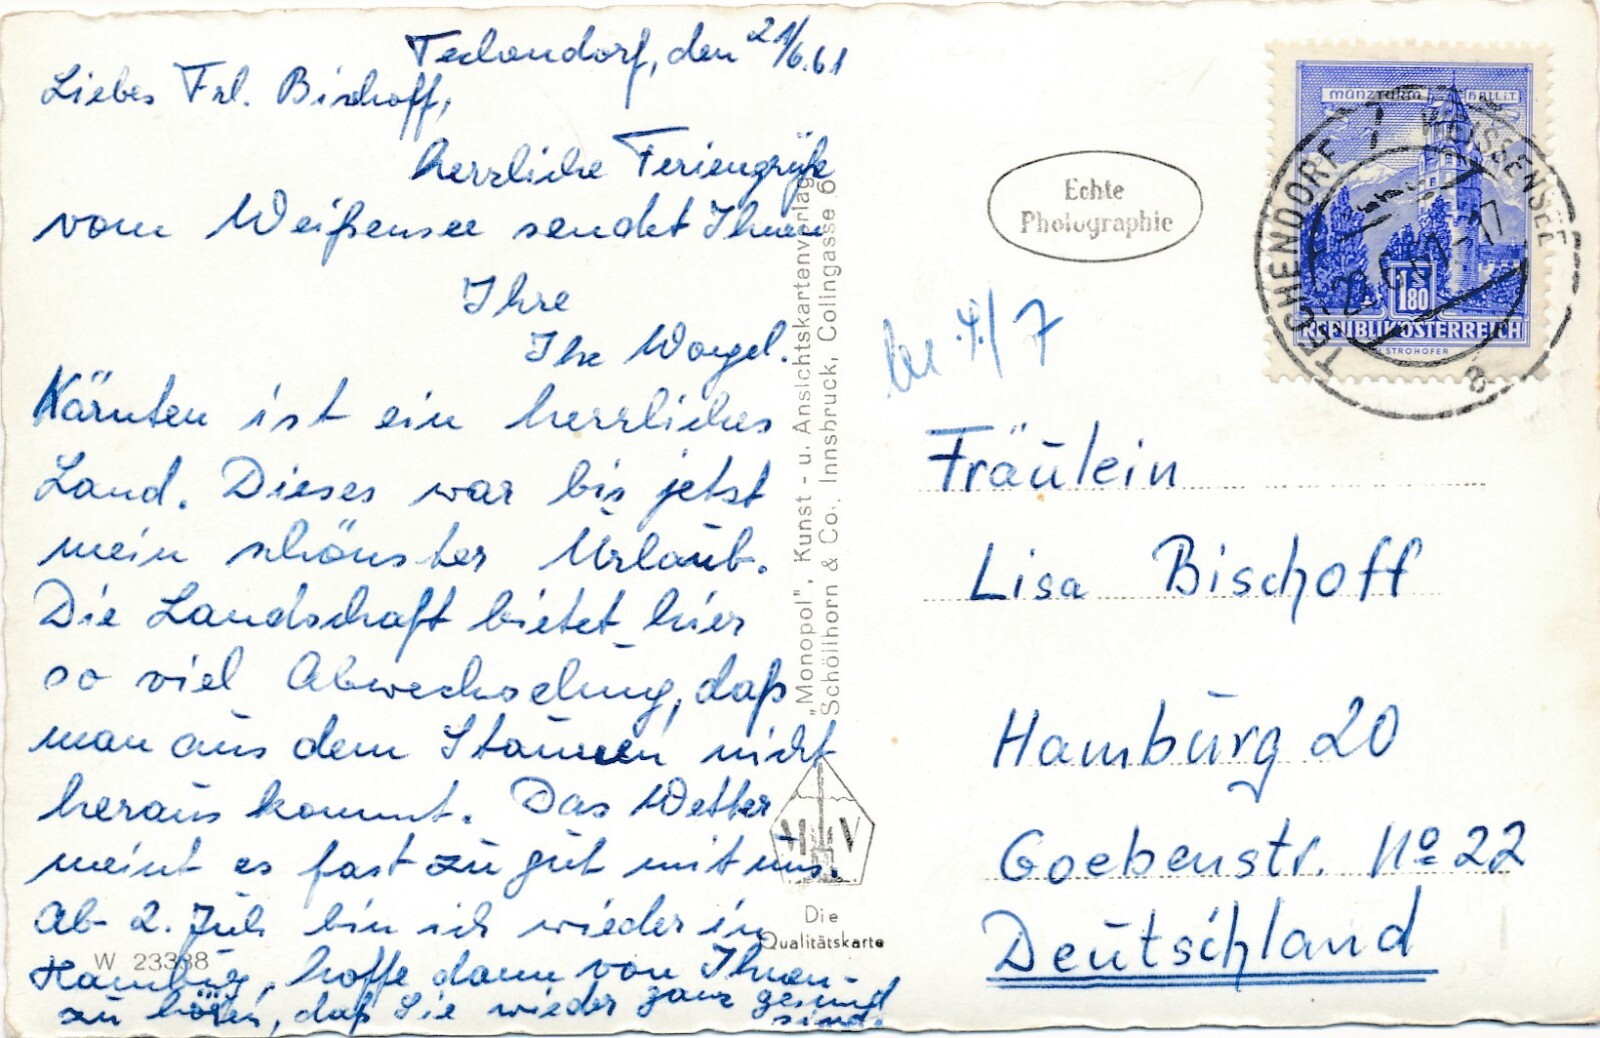 Techendorf, den 21/6.61
Liebes Frl. Bischoff,
herrliche Feriengrüße
vom Weißensee sendet Ihnen
Ihre
Ilse
Kärnten ist ein herrliches
Land. Dieses war bis jetzt
mein schönster Urlaub.
Die Landschaft bietet hier
so viel Abwechslung, daß
man aus dem Staunen nicht
heraus kommt. Das Wetter
meint es fast zu gut mit uns.
Ab 2. Juli bin ich wieder in
Hamburg, hoffe dann von Ihnen
zu hören, daß Sie wieder ganz gesund
sind.
W 23388
"Monopol", Kunst- u. Ansichtskartenverlag
Schöllhorn & Co. Innsbruck, Colingasse 6
M V
Die
Qualitätskarte
Echte
Photographie
4/7
MÜNZTURM HALL I.T.
1.80
REPUBLIK ÖSTERREICH
STROHOFER
TECHENDORF WEISSENSEE
a
Fräulein
Lisa Bischoff
Hamburg 20
Goebenstr. No 22
Deutschland